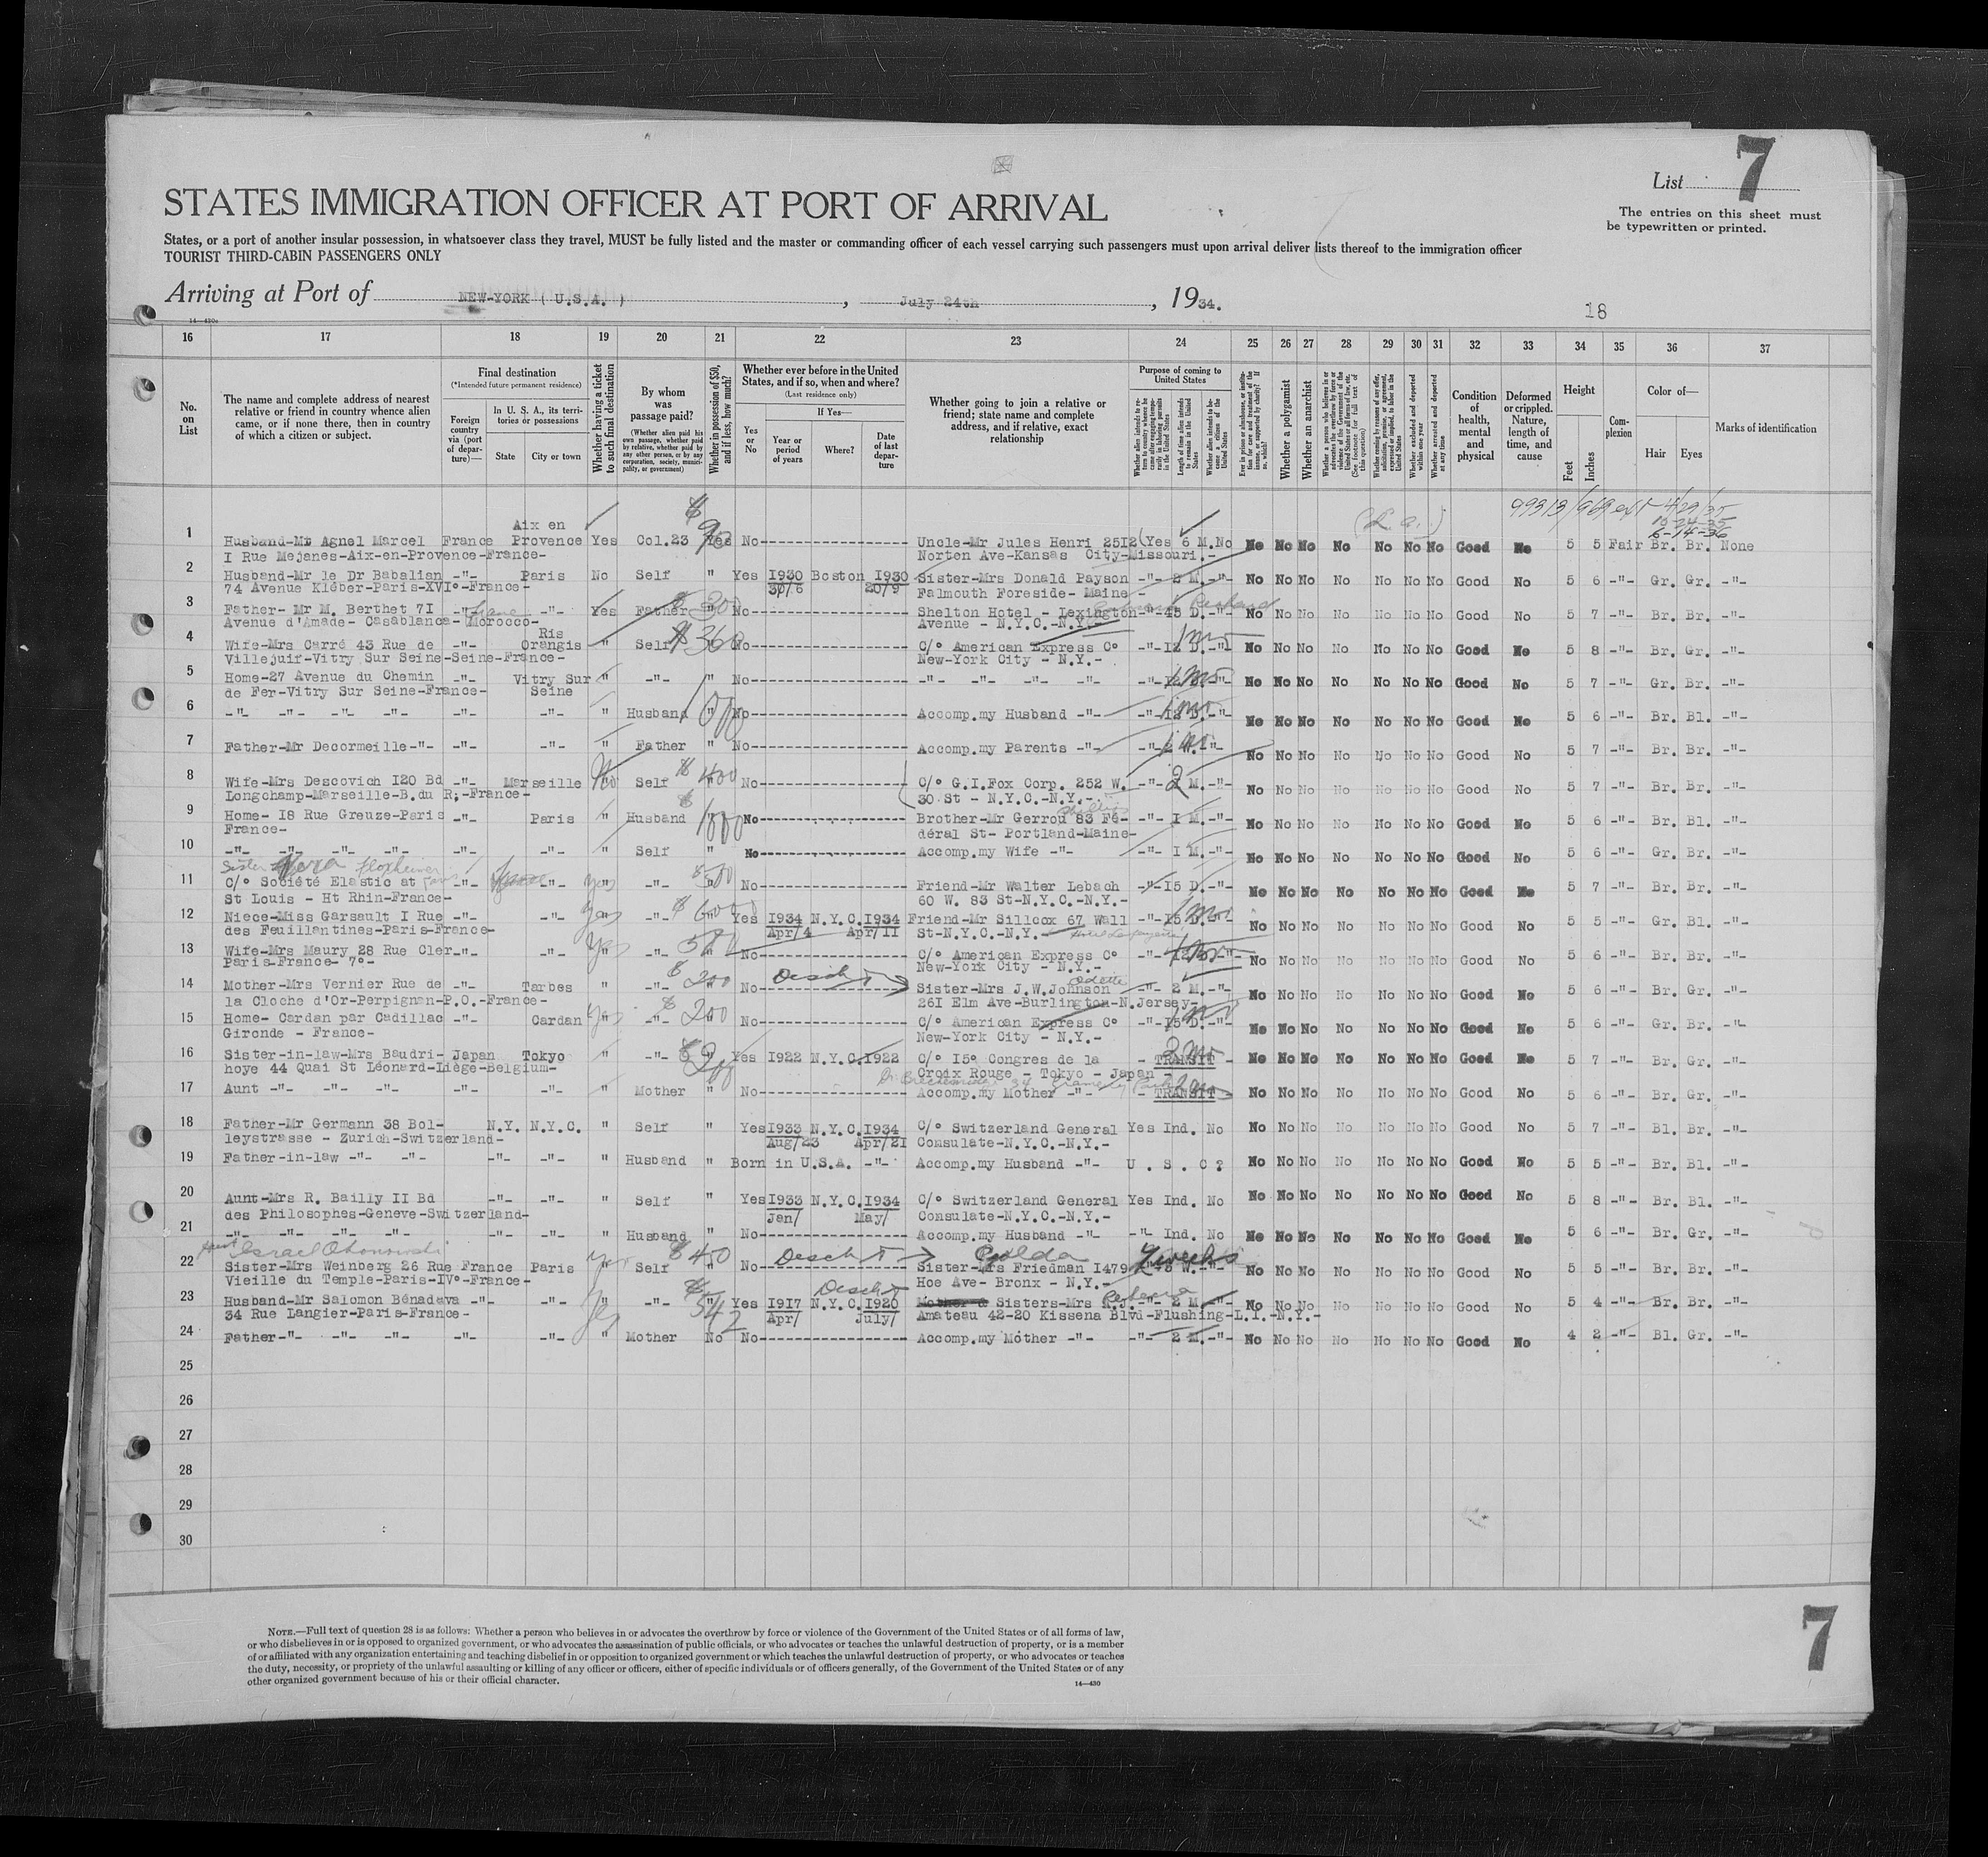 List 7
STATES IMMIGRATION OFFICER AT PORT OF ARRIVAL
The entries on this sheet must
be typewritten or printed.
States, or a port of another insular possession, in whatsoever class they travel, MUST be fully listed and the master or commanding officer of each vessel carrying such passengers must upon arrival deliver lists thereof to the immigration officer
TOURIST THIRD-CABIN PASSENGERS ONLY
Arriving at Port of NEW-YORK ( U.S.A. ) , July 24th , 1934.
18
16 17 18 19 20 21 22 23 24 25 26 27 28 29 30 31 32 33 34 35 36 37
No. on List
The name and complete address of nearest relative or friend in country whence alien came, or if none there, then in country of which a citizen or subject.
Final destination
(*Intended future permanent residence)
Foreign country via (port of departure)—
In U. S. A., its territories or possessions
State City or town
Whether having a ticket to such final destination
By whom was passage paid?
(Whether alien paid his own passage, whether paid by relative, whether paid by any other person, or by any corporation, society, municipality, or government)
Whether in possession of $50, and if less, how much?
Whether ever before in the United States, and if so, when and where?
(Last residence only)
Yes or No
If Yes—
Year or period of years Where? Date of last departure
Whether going to join a relative or friend; state name and complete address, and if relative, exact relationship
Purpose of coming to United States
Whether a polygamist
Whether an anarchist
Condition of health, mental and physical
Deformed or crippled. Nature, length of time, and cause
Height
Feet Inches
Complexion
Color of—
Hair Eyes
Marks of identification
1 Husband-Mr Agnel Marcel France Aix en Provence Yes Col.23 Yes No Uncle-Mr Jules Henri 2512 Yes 6 M. No No No No No No No No Good No 5 5 Fair Br. Br. None
I Rue Mejanes-Aix-en-Provence-France- Norten Ave-Kansas City-Missouri.-
2 Husband-Mr le Dr Babalian -"- Paris No Self " Yes 1930 Boston 1930 Sister-Mrs Donald Payson -"- 2 M.-"- No No No No No No No Good No 5 6 -"- Gr. Gr. -"-
74 Avenue Kléber-Paris-XVI°-France- 30/6 20/9 Falmouth Foreside- Maine-
3 Father- Mr M. Berthet 71 -"- -"- Yes Father " No Shelton Hotel - Lexington -"- 45 D.-"- No No No No No No No Good No 5 7 -"- Br. Br. -"-
Avenue d'Amade- Casablanca- Morocco- Avenue - N.Y.C.-N.Y.-
4 Wife-Mrs Carré 43 Rue de -"- Ris Orangis " Self $360 No C/° American Express C° -"- 12 D.-"- No No No No No No No Good No 5 8 -"- Br. Gr. -"-
Villejuif-Vitry Sur Seine-Seine-France- New-York City - N.Y.-
5 Home-27 Avenue du Chemin -"- Vitry Sur Seine " -"- " No -"- -"- -"- -"- -"- No No No No No No No Good No 5 7 -"- Gr. Br. -"-
de Fer-Vitry Sur Seine-France-
6 -"- -"- -"- -"- -"- -"- " Husband No Accomp.my Husband -"- -"- 12 D.-"- No No No No No No No Good No 5 6 -"- Br. Bl. -"-
7 Father-Mr Decormeille-"- -"- -"- " Father " No Accomp.my Parents -"- No No No No No No No Good No 5 7 -"- Br. Br. -"-
8 Wife-Mrs Descovich 120 Bd -"- Marseille No Self $400 No C/° G.I.Fox Corp. 252 W. -"- 2 M.-"- No No No No No No No Good No 5 7 -"- Br. Br. -"-
Longchamp-Marseille-B.du R;-France- 30 St - N.Y.C.-N.Y.-
9 Home- 18 Rue Greuze-Paris -"- Paris " Husband No Brother-Mr Gerrou 83 Fé- -"- I M.-"- No No No No No No No Good No 5 6 -"- Br. Bl. -"-
France- déral St- Portland-Maine-
10 -"- -"- -"- -"- -"- -"- " Self " No Accomp.my Wife -"- -"- I M.-"- No No No No No No No Good No 5 6 -"- Gr. Br. -"-
11 C/° Société Elastic at -"- -"- yes -"- $500 No Friend-Mr Walter Lebach -"- 15 D.-"- No No No No No No No Good No 5 7 -"- Br. Br. -"-
St Louis - Ht Rhin-France- 60 W. 83 St-N.Y.C.-N.Y.-
12 Niece-Miss Garsault I Rue -"- -"- yes -"- Yes 1934 N.Y.C. 1934 Friend-Mr Sillcox 67 Wall -"- 15 D.-"- No No No No No No No Good No 5 5 -"- Gr. Bl. -"-
des Feuillantines-Paris-France- Apr/4 Apr/11 St-N.Y.C.-N.Y.- Hotel Lafayette
13 Wife-Mrs Maury 28 Rue Cler -"- -"- yes -"- No C/° American Express C° No No No No No No No Good No 5 6 -"- Br. Br. -"-
Paris-France- 7°- New-York City - N.Y.-
14 Mother-Mrs Vernier Rue de -"- Tarbes " -"- $200 No Sister-Mrs J.W.Johnson Odette -"- 2 M.-"- No No No No No No No Good No 5 6 -"- Br. Gr. -"-
la Cloche d'Or-Perpignan-P.O.-France- 261 Elm Ave-Burlington-N.Jersey-
15 Home- Cardan par Cadillac -"- Cardan yes -"- $200 No C/° American Express C° -"- 15 D.-"- No No No No No No No Good No 5 6 -"- Gr. Br. -"-
Gironde - France- New-York City - N.Y.-
16 Sister-in-law-Mrs Baudri- Japan Tokyo " -"- Yes 1922 N.Y.C. 1922 C/° 15° Congres de la - TRANSIT - No No No No No No No Good No 5 7 -"- Br. Gr. -"-
hoye 44 Quai St Léonard-Liège-Belgium- Croix Rouge - Tokyo - Japan -
17 Aunt -"- -"- -"- -"- -"- -"- " Mother " No Accomp.my Mother -"- - TRANSIT - No No No No No No No Good No 5 6 -"- Br. Gr. -"-
18 Father-Mr Germann 38 Bol- N.Y. N.Y.C. " Self " Yes 1933 N.Y.C. 1934 C/° Switzerland General Yes Ind. No No No No No No No No Good No 5 7 -"- Bl. Br. -"-
leystrasse - Zurich-Switzerland- Aug/23 Apr/21 Consulate-N.Y.C.-N.Y.-
19 Father-in-law -"- -"- -"- -"- " Husband " Born in U.S.A. -"- Accomp.my Husband -"- U . S . C ? No No No No No No No Good No 5 5 -"- Br. Bl. -"-
20 Aunt-Mrs R. Bailly II Bd -"- -"- " Self " Yes 1933 N.Y.C. 1934 C/° Switzerland General Yes Ind. No No No No No No No No Good No 5 8 -"- Br. Bl. -"-
des Philosophes-Geneve-Switzerland- Jan/ May/ Consulate-N.Y.C.-N.Y.-
21 -"- -"- -"- -"- -"- -"- " Husband " No Accomp.my Husband -"- -"- Ind. No No No No No No No No Good No 5 6 -"- Br. Gr. -"-
22 Sister-Mrs Weinberg 26 Rue France Paris " Self $40 No Sister-Mrs Friedman 1479 Golda No No No No No No No Good No 5 5 -"- Br. Br. -"-
Vieille du Temple-Paris-IV°-France- Hoe Ave- Bronx - N.Y.-
23 Husband-Mr Salomon Bénadava -"- -"- yes -"- Yes 1917 N.Y.C. 1920 Sisters-Mrs R. Rebecca -"- 2 M.-"- No No No No No No No Good No 5 4 -"- Br. Br. -"-
34 Rue Langier-Paris-France- Apr/ July/ Amateau 42-20 Kissena Blvd-Flushing-L.I.-N.Y.-
24 Father-"- -"- -"- -"- -"- " Mother No No Accomp.my Mother -"- -"- 2 M.-"- No No No No No No No Good No 4 2 -"- Bl. Gr. -"-
25
26
27
28
29
30
NOTE.—Full text of question 28 is as follows: Whether a person who believes in or advocates the overthrow by force or violence of the Government of the United States or of all forms of law,
or who disbelieves in or is opposed to organized government, or who advocates the assassination of public officials, or who advocates or teaches the unlawful destruction of property, or is a member
of or affiliated with any organization entertaining and teaching disbelief in or opposition to organized government or which teaches the unlawful destruction of property, or who advocates or teaches
the duty, necessity, or propriety of the unlawful assaulting or killing of any officer or officers, either of specific individuals or of officers generally, of the Government of the United States or of any
other organized government because of his or their official character.
14—430
7